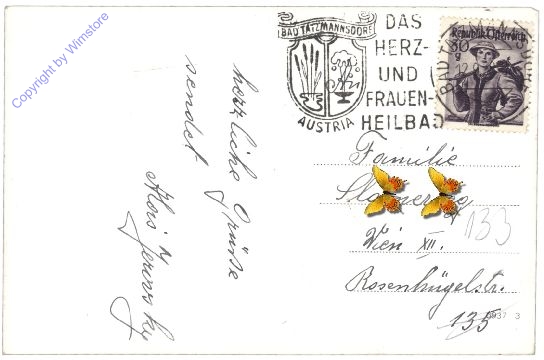 Copyright by Wimstore
BAD TATZMANNSDORF
AUSTRIA
DAS
HERZ-
UND
FRAUEN-
HEILBAD
Republik Österreich
30
g
BAD TATZMANNSDORF
herzliche Grüsse
sendet
Alois
Familie
Wien XII.
Rosenhügelstr.
135
133
3